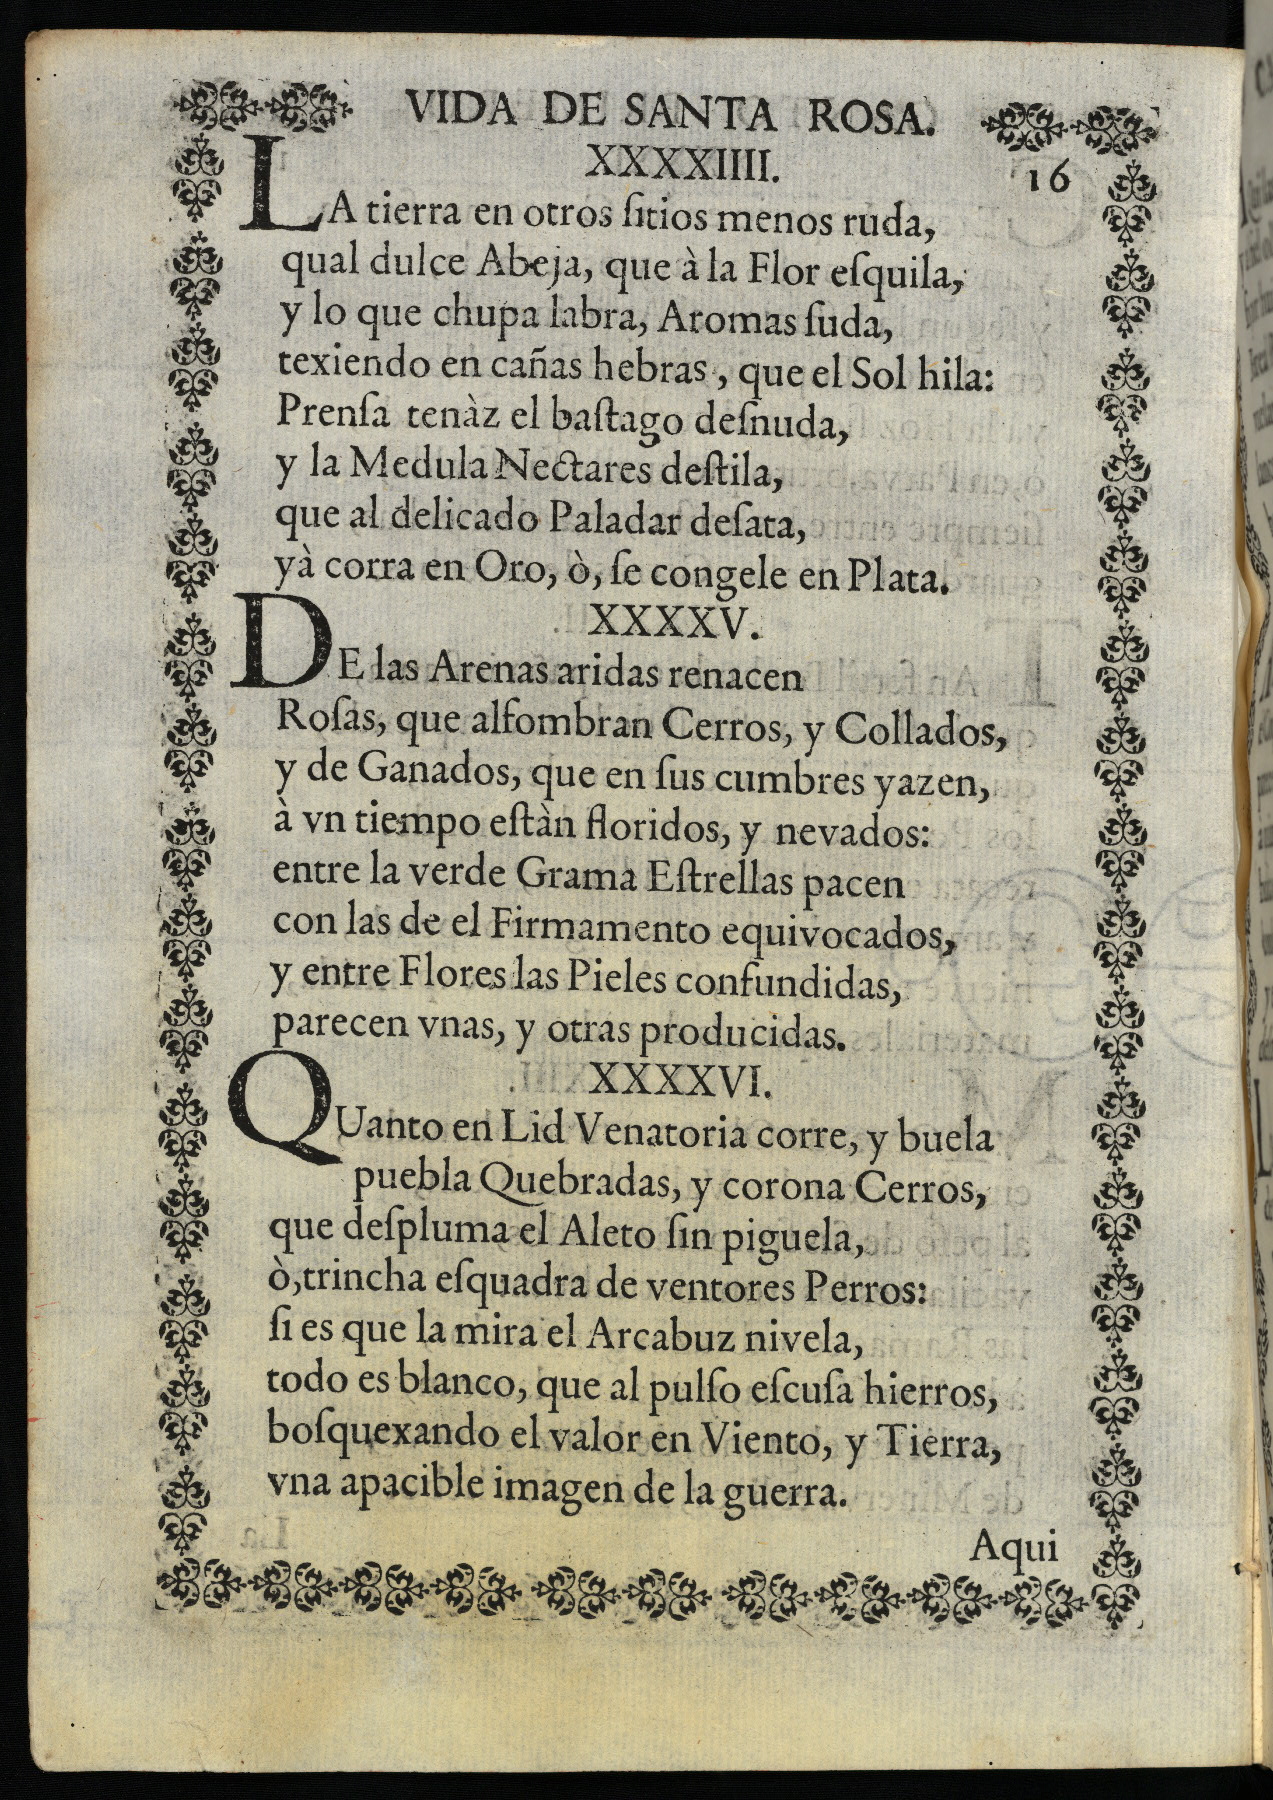 VIDA DE SANTA ROSA.
XXXXIIII.
16
LA tierra en otros ſitios menos ruda,
qual dulce Abeja, que à la Flor eſquila,
y lo que chupa labra, Aromas ſuda,
texiendo en cañas hebras, que el Sol hila:
Prenſa tenàz el baſtago deſnuda,
y la Medula Nectares deſtila,
que al delicado Paladar deſata,
yà corra en Oro, ò, ſe congele en Plata.
XXXXV.
DE las Arenas aridas renacen
Roſas, que alfombran Cerros, y Collados,
y de Ganados, que en ſus cumbres yazen,
à vn tiempo eſtàn floridos, y nevados:
entre la verde Grama Eſtrellas pacen
con las de el Firmamento equivocados,
y entre Flores las Pieles confundidas,
parecen vnas, y otras producidas.
XXXXVI.
QUanto en Lid Venatoria corre, y buela
puebla Quebradas, y corona Cerros,
que deſpluma el Aleto ſin piguela,
ò,trincha eſquadra de ventores Perros:
ſi es que la mira el Arcabuz nivela,
todo es blanco, que al pulſo eſcuſa hierros,
boſquexando el valor en Viento, y Tierra,
vna apacible imagen de la guerra.
Aqui